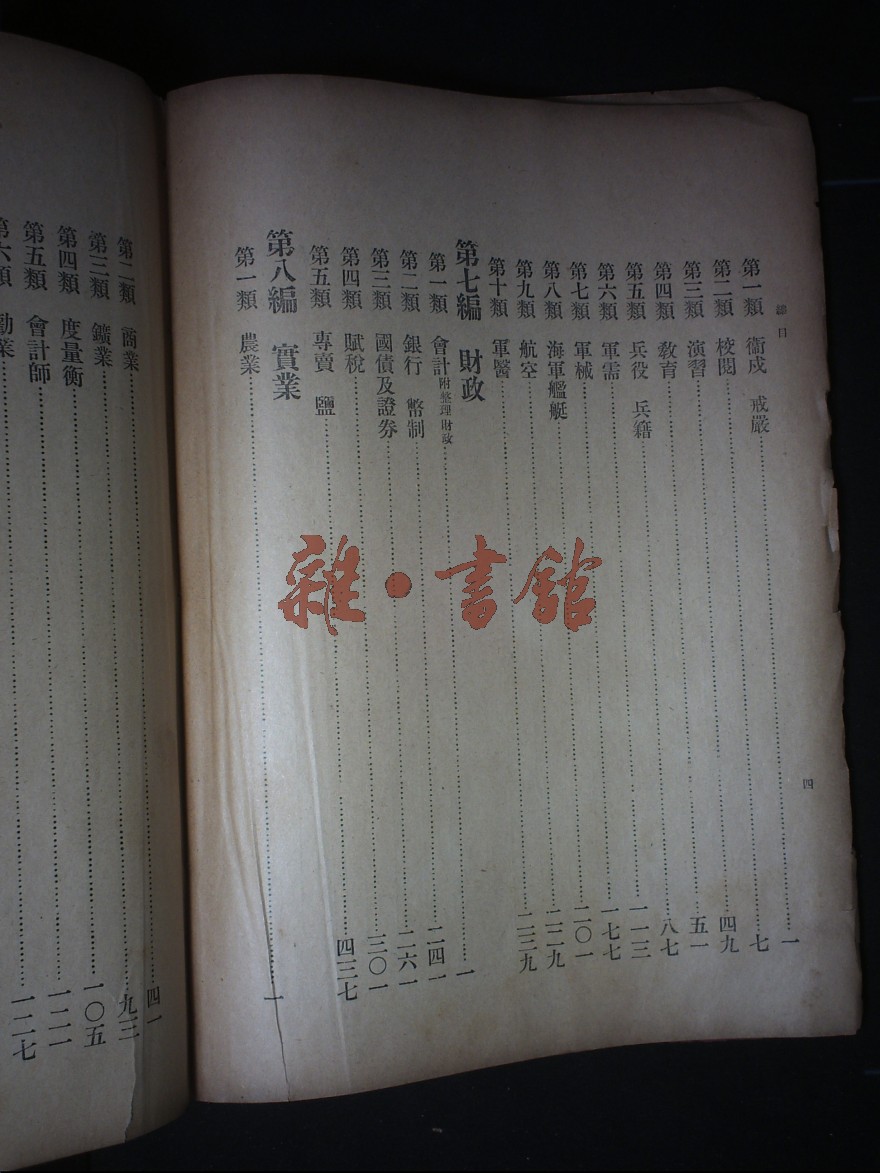 總目
四
第一類 衞戍 戒嚴……一
第二類 校閱……七
第三類 演習……四九
第四類 敎育……五一
第五類 兵役 兵籍……八七
第六類 軍需……一一三
第七類 軍械……一七七
第八類 海軍艦艇……二〇一
第九類 航空……二二九
第十類 軍醫……二三九
第七編 財政
第一類 會計附整理財政……一
第二類 銀行 幣制……二四一
第三類 國債及證券……二六一
第四類 賦稅……三〇一
第五類 專賣 鹽……四三七
第八編 實業
第一類 農業……一
第二類 商業……四一
第三類 鑛業……九三
第四類 度量衡……一〇五
第五類 會計師……一二一
第六類 勸業……一二七
雜·書館